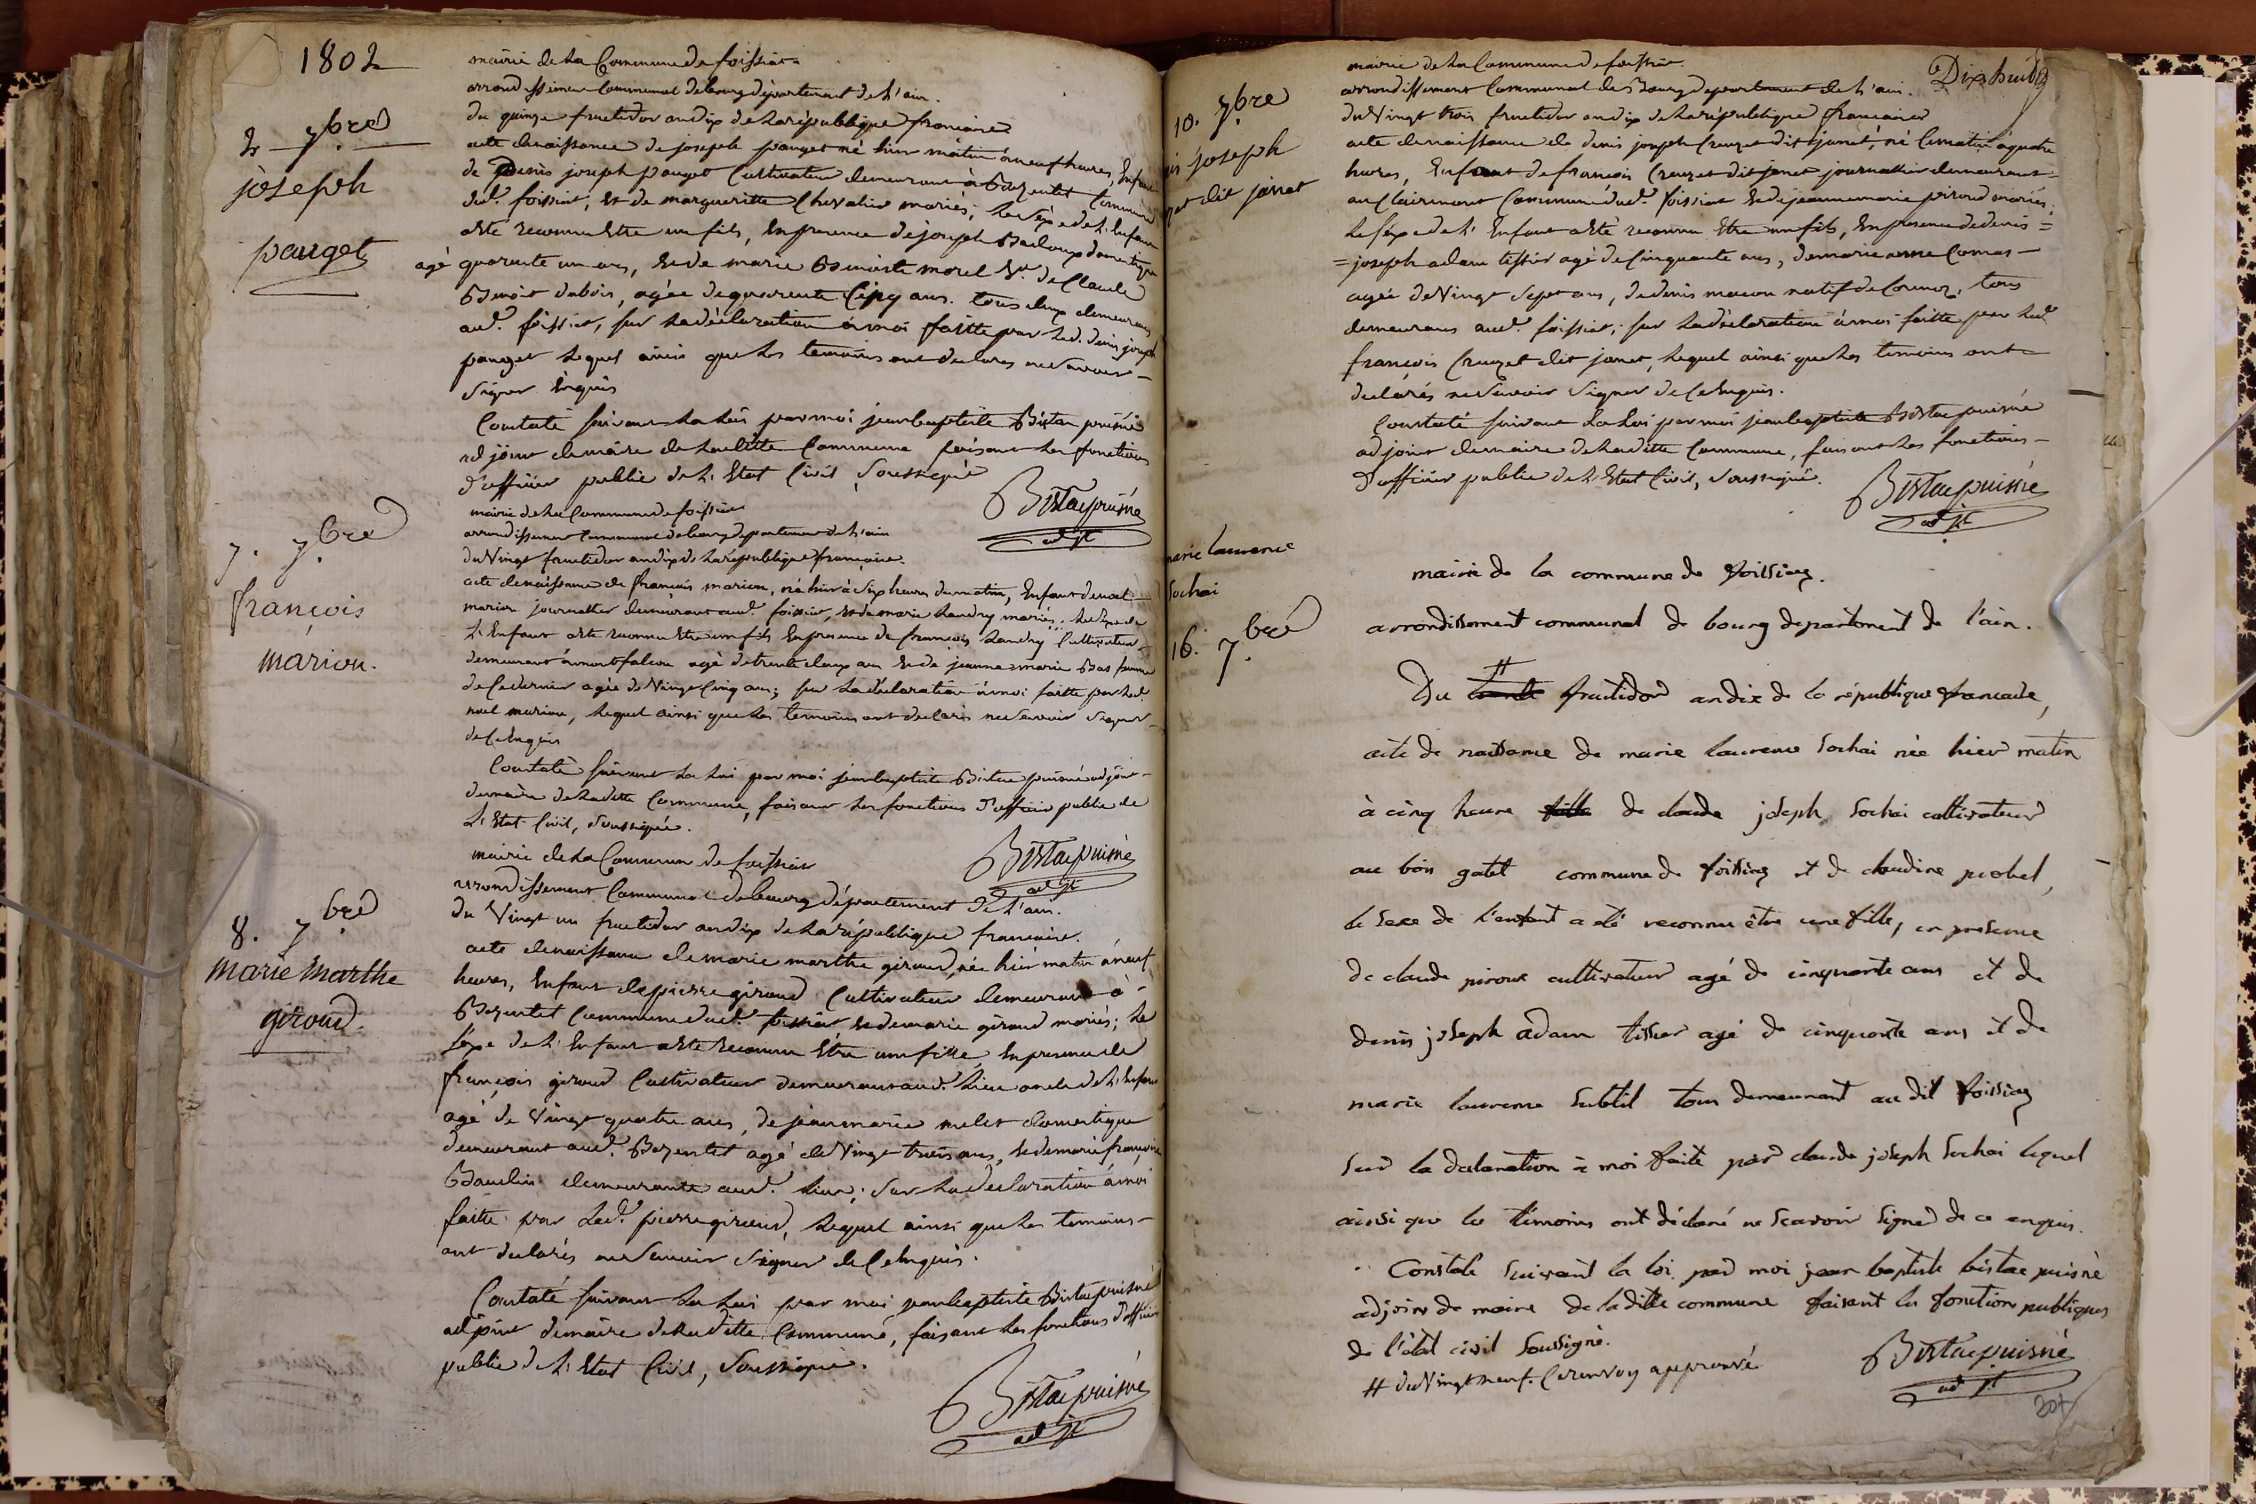 1802
2 7.bre
joseph
pauget
mairie de la Commune de foissiat
arrondissement Communal de bourg département de l'ain.
du quinze fructidor an dix de la république francaise
acte de naissance de joseph pauget né hier matin à neuf heures, Enfant
de denis joseph pauget Cultivateur demeurant à Bezentet Commune
dud.t foissiat, et de margueritte Chevalier mariés; le séxe de l'Enfant
a été reconnu Etre un fils, En presence de joseph Baaloup domestique
agé quarante un ans, et de marie Benoiste morel V.e de Claude
Benoit dubois, agée de quarente Cinq ans. tous deux demeurans
aud.t foissiat, sur la déclaration à moi faitte par led. denis joseph
pauget lequel ainsi que les temoins ont declarés ne savoir
signer Enquis
Constaté suivant la Loi par moi jean baptiste Bistac puisné
adjoint de maire de laditte Commune faisant les fonctions
d'officier public de l'Etat Civil, Soussigné
Bistac puisné
adjt
7. 7.bre
françois
marion.
mairie de la Commune de foissiat
arrondissement Communal de bourg département de l'ain
du Vingt fructidor an dix de la république francaise.
acte de naissance de françois marion, né hier à Six heures du matin, Enfant de noel
marion journallier demeurant aud.t foissiat, et de marie Landry mariés; le séxe de
L'Enfant a été reconnu Etre un fils En presence de francois Landry Cultivateur
demeurant à montfalcon agé de trente deux ans et de jeanne marie Bas femme
de Ce dernier agée de Vingt Cinq ans; sur la déclaration à moi faitte par led.t
noel marion, lequel ainsi que les temoins ont declarés ne Savoir signer
de Ce Enquis
Constaté suivant la Loi par moi jean baptiste Bistac puisné adjoint
de maire de laditte Commune, faisant les fonctions d'officier public de
L'Etat Civil, Soussigné.
Bistac puisné
adjt
8. 7.bre
marie marthe
giroud.
mairie de la Commune de foissiat
arrondissement Communal de bourg département de l'ain.
du Vingt un fructidor an dix de la république francaise.
acte de naissance de marie marthe giroud, née hier matin à neuf
heures, Enfant de pierre giroud Cultivateur demeurant à
Bezentet Commune dud.t foissiat et de marie giroud mariés; le
séxe de l'Enfant a été reconnu Etre une fille, En presence de
françois giroud Cultivateur demeurant aud.t lieu oncle de l'Enfant
agé de Vingt quatre ans, de jean marie milet domestique
demeurant aud.t Bezentet agé de Vingt trois ans, et de marie françoise
Baudin demeurante aud.t lieu; Sur la declaration à moi
faitte par led.t pierre giroud, lequel ainsi que les temoins
ont declarés ne Savoir Signer de Ce Enquis.
Constaté suivant la Loi par moi jean baptiste Bistac puisné
adjoint de maire de laditte Commune, faisant les fonctions d'officier
public de l'Etat Civil, Soussigné.
Bistac puisné
adjt
Dix huit
10. 7.bre
is joseph
zet dit janet
mairie de la Commune de foissiat.
arrondissement Communal de Bourg departement de l'ain.
du Vingt trois fructidor an dix de la république francaise
acte de naissance de denis joseph Cruzet dit janet, né Ce matin à quatre
heures, Enfant de francois Cruzet dit janet journallier demeurant
au Clairmont Commune dud.t foissiat et de jeanne marie piroud mariés;
le séxe de l'Enfant a été reconnu Etre un fils, En presence de denis
joseph adam tissier agé de Cinquante ans, de marie anne Comas
agée de Vingt Sept ans, de denis macon natif de Cormoz, tous
demeurans aud.t foissiat; sur la declaration à moi faitte par led.t
françois Cruzet dit janet, lequel ainsi que les temoins ont
declarés ne Savoir Signer de Ce Enquis.
Constaté suivant La Loi par moi jean baptiste Bistac puisné
adjoint de maire de laditte Commune, faisant les fonctions
d'officier public de l'Etat Civil, Soussigné.
Bistac puisné
adjt
marie laurence
Sochai
16. 7.bre
mairie de la commune de foissiaz.
arrondissement communal de bourg departement de l'ain.
Du # trente fructidor an dix de la république francaise,
acte de naissance de marie laurence Sochai née hier matin
à cinq heure fille de claude joseph Sochai cultivateur
au bois gatel commune de foissiaz et de claudine probel,
le sexe de l'enfant a été reconnu être une fille, en presence
de claude piroux cultivateur agé de cinquante ans et de
denis joseph adam tissier agé de cinquante ans et de
marie laurence subtil tous demeurant au dit foissiaz
sur la declaration à moi faite par claude joseph Sochai lequel
ainsi que les temoins ont déclaré ne scavoir signer de ce enquis.
Constaté suivant la loi par moi jean baptiste bistac puisné
adjoint de maire de la ditte commune faisant les fonction publiques
de l'état civil soussigné.
# du Vingt neuf. Ce renvoy approuvé
Bistac puisné
adjt
207